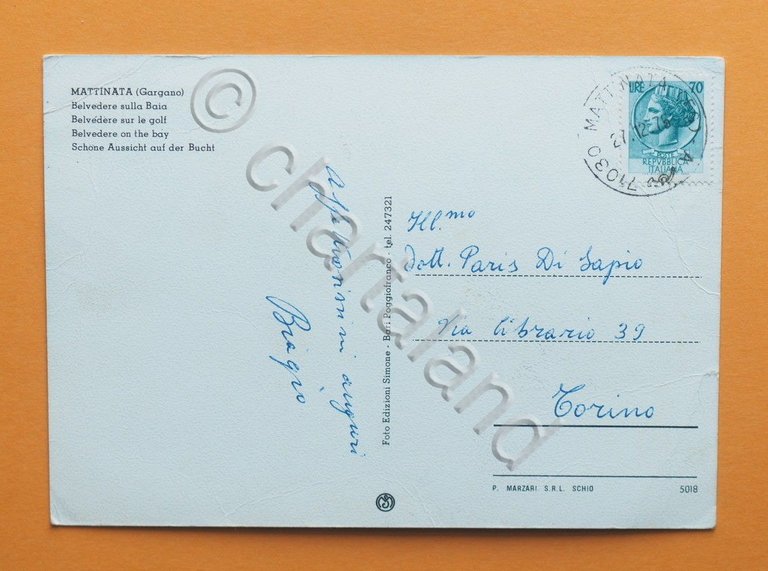 MATTINATA (Gargano)
Belvedere sulla Baia
Belvedére sur le golf
Belvedere on the bay
Schöne Aussicht auf der Bucht
Affettuosissimi auguri
Biagio
Foto Edizioni Simone - Bari Poggiofranco - tel. 247321
LIRE 70
POSTE
REPVBBLICA
ITALIANA
71030 MATTINATA
27.12.
Ill.mo
dott. Paris Di Sapio
Via Librario 39
Torino
P. MARZARI S.R.L. SCHIO 5018
© chartaland